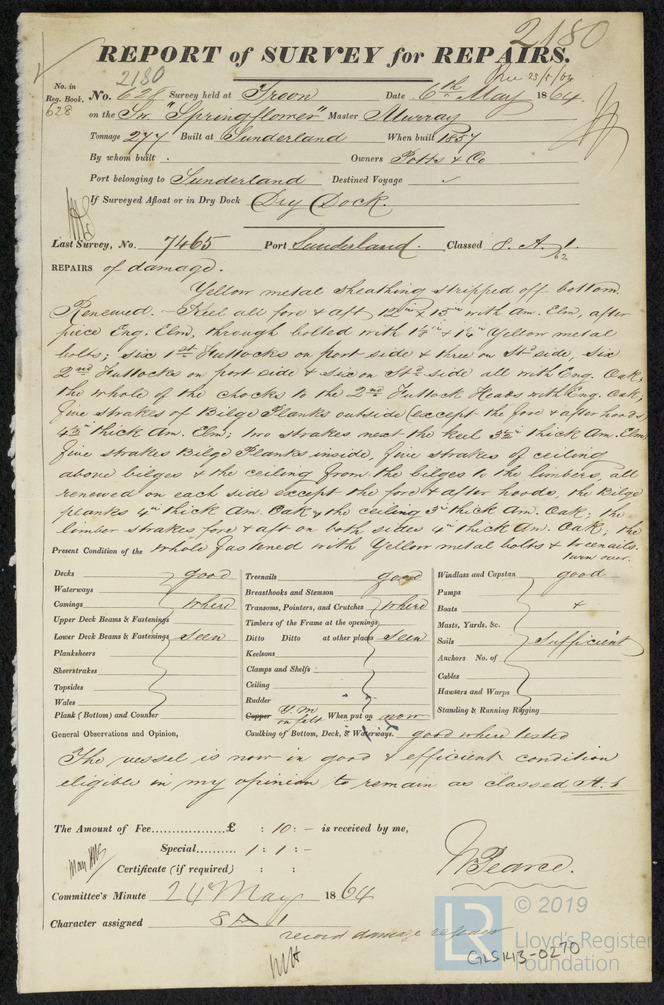 2180
REPORT of SURVEY for REPAIRS.
2180 Rec 23/5/64
No. in Reg. Book. 628
No. 628 Survey held at Troon Date 6th May 1864
on the Sw. "Springflower" Master Murray
Tonnage 277 Built at Sunderland When built 1857
By whom built . Owners Potts & Co
Port belonging to Sunderland Destined Voyage
If Surveyed Afloat or in Dry Dock Dry Dock.
Last Survey, No. 7465 Port Sunderland. Classed 8. A. 1. 62
REPAIRS of damage.
Yellow metal sheathing stripped off bottom.
Renewed. - Keel all fore & aft 12½in x 13in with Am. Elm, after
piece Eng. Elm, through bolted with & 1¼in Yellow metal
bolts; six 1st Futtocks on port side & three on Std side, six
2nd Futtocks on port side & six on Std side all with Eng. Oak;
the whole of the chocks to the 2nd Futtock Heads with Eng. Oak;
five strakes of Bilge Planks outside (except the fore & after hoods)
4½in thick Am. Elm; two strakes next the keel 3½in thick Am. Elm
Five strakes Bilge Planks inside, five strakes of ceiling
above bilges & the ceiling from the bilges to the limbers, all
renewed on each side except the fore & after hoods, the Bilge
planks 4in thick Am. Oak & the ceiling 3in thick Am. Oak; the
limber strakes fore & aft on both sides 4in thick Am. Oak, the
Present Condition of the whole fastened with Yellow metal bolts & treenails.
turn over.
Decks good
Waterways
Comings where
Upper Deck Beams & Fastenings
Lower Deck Beams & Fastenings seen
Planksheers
Sheerstrakes
Topsides
Wales
Plank (Bottom) and Counter
Treenails good
Breasthooks and Stemson
Transoms, Pointers, and Crutches where
Timbers of the Frame at the openings
Ditto Ditto at other places seen
Keelsons
Clamps and Shelfs
Ceiling
Rudder " "
Copper Y. M on felt When put on now
Caulking of Bottom, Deck, & Waterways. good where tested
Windlass and Capstan good
Pumps
Boats &
Masts, Yards, &c.
Sails Sufficient
Anchors No. of
Cables
Hawsers and Warps
Standing & Running Rigging
General Observations and Opinion,
The vessel is now in good & efficient condition
eligible in my opinion to remain as classed A. 1
The Amount of Fee £ : 10 : - is received by me,
Special 1 : 1 : -
Certificate (if required) : :
W Pearce.
Committee's Minute 24 May 1864
Character assigned 8 A 1
record damage repairs
© 2019
LR
Lloyd's Register
Foundation
GLS143-0270